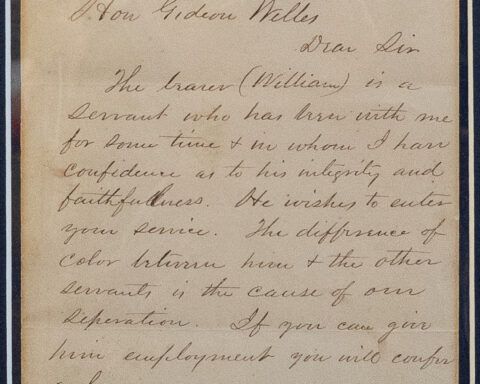 Hon Gideon Welles
Dear Sir
The bearer (William) is a
servant who has been with me
for some time & in whom I have
confidence as to his integrity and
faithfulness. He wishes to enter
your service. The difference of
color between him & the other
servants is the cause of our
seperation. If you can give
him employment you will confer